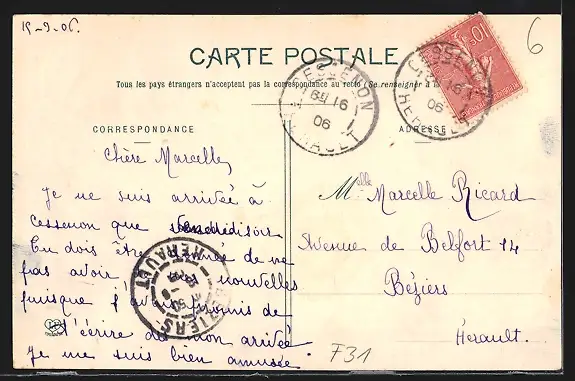 15-9-06.
6
CARTE POSTALE
Tous les pays étrangers n'acceptent pas la correspondance au recto (Se renseigner à la
CESSENON
16
06
HERAULT
CESSENON
16
06
HERAULT
10
CORRESPONDANCE
ADRESSE
Chère Marcelle,
Je ne suis arrivée à
cessenon que vendredi soir
Tu dois être de ne
pas avoir nouvelles
puisque j'avais promis de
t'écrire mon arrivée
Je me suis bien amusée.
BEZIERS
HERAULT
Melle Marcelle Ricard
Avenue de Belfort 14
Béziers
Hérault.
F31